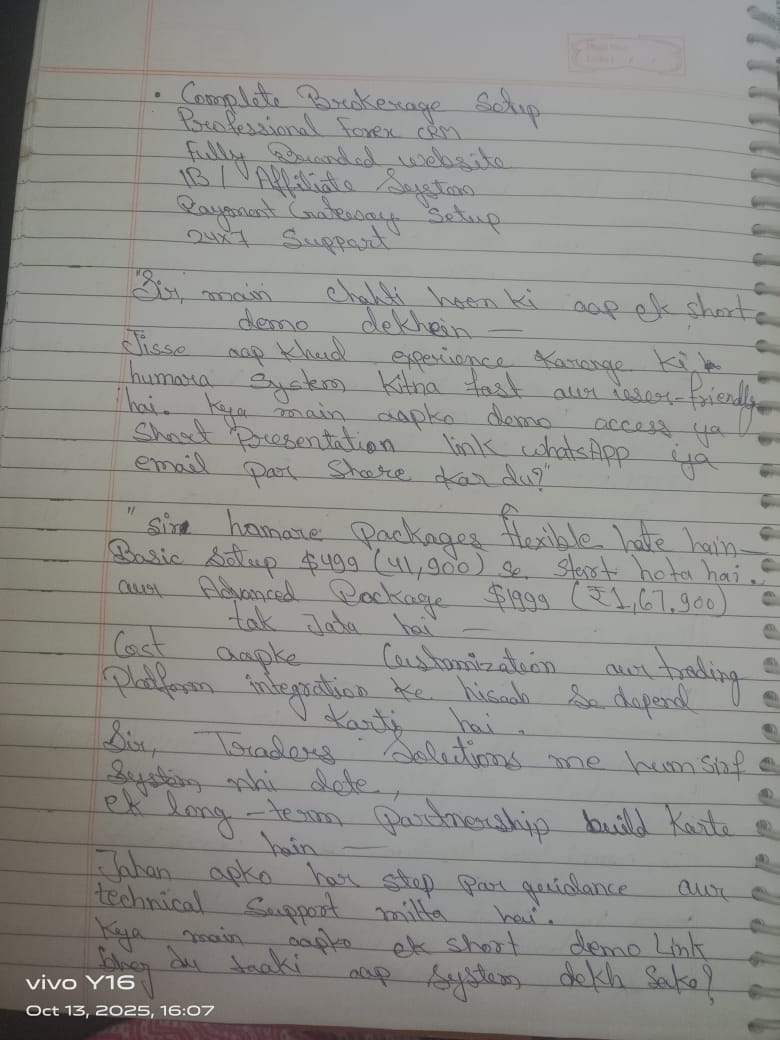 • Complete Brokerage Setup
Professional Forex CRM
Fully Branded website
IB / Affiliate System
Payment Gateway Setup
24x7 Support
"Sir, main chahti hoon ki aap ek short
demo dekhein —
Jisse aap khud experience karenge ki
humara system kitna fast aur user-friendly
hai. kya main aapko demo access ya
Short Presentation link whatsApp ya
email par share kar du?"
"sir hamare packages flexible hote hain—
Basic Setup $499 (41,900) se start hota hai.
aur Advanced Package $1999 (₹1,67.900)
tak Jata hai —
Cost aapke Customization aur trading
Platform integration ke hisaab se depend
karti hai.
Sir, Traders Solutions me hum sirf
System nhi dete,
ek long-term partnership build karte
hain —
Jahan apko har step par guidance aur
technical Support milta hai.
Kya main aapko ek short demo Link
bhej du taaki aap system dekh sake?
vivo Y16
Oct 13, 2025, 16:07